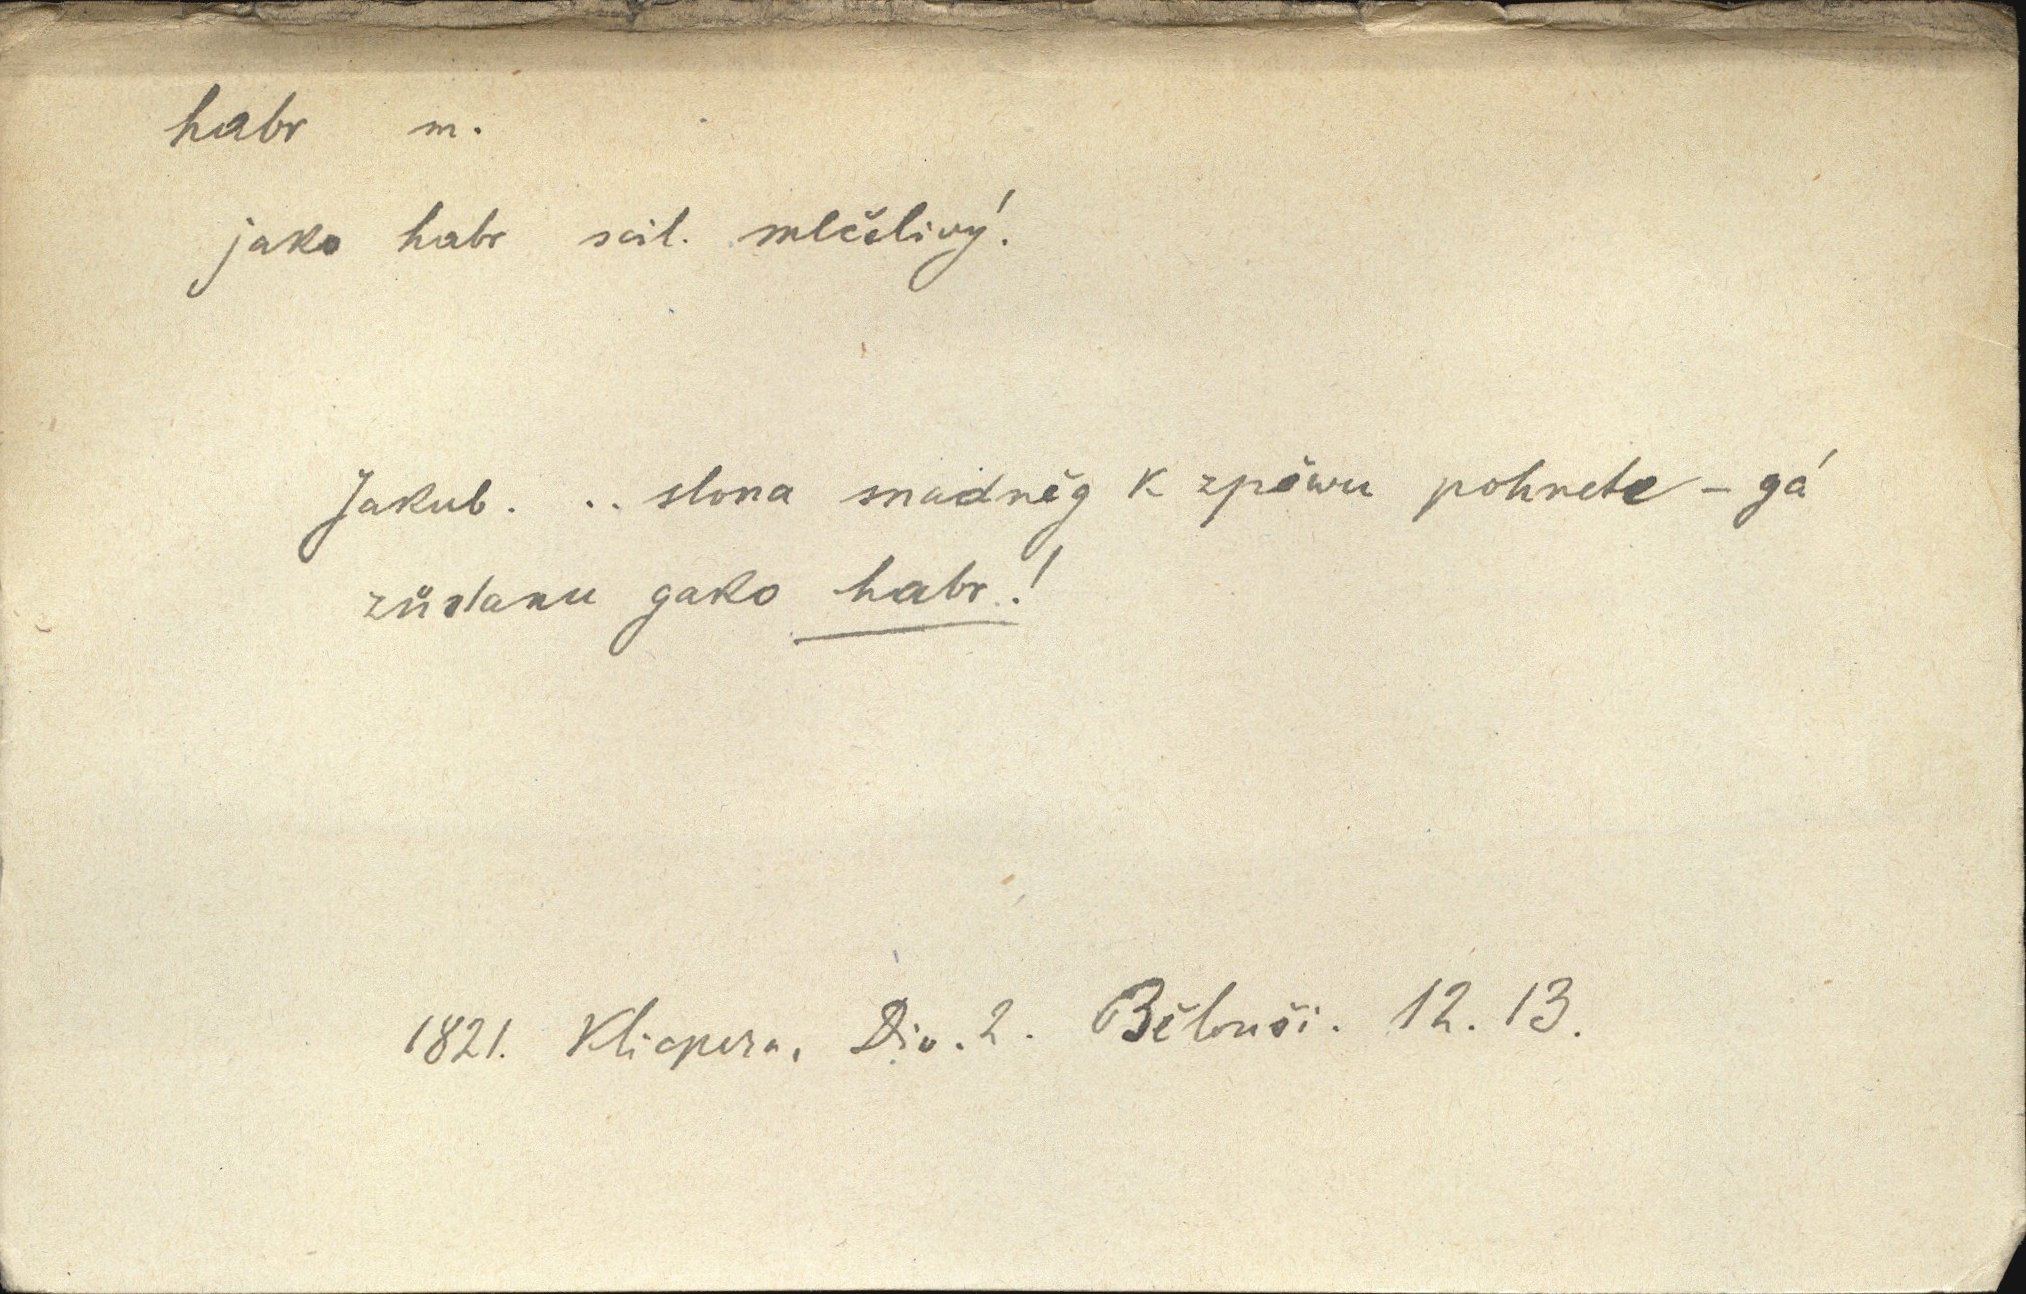 habr m.
jako habr scil. mlčelivý.
Jakub. .. slona snadněg k zpěwu pohnete – gá
zůstanu gako habr.!
1821. Klicpera, Div. 2. Bělouši. 12. 13.